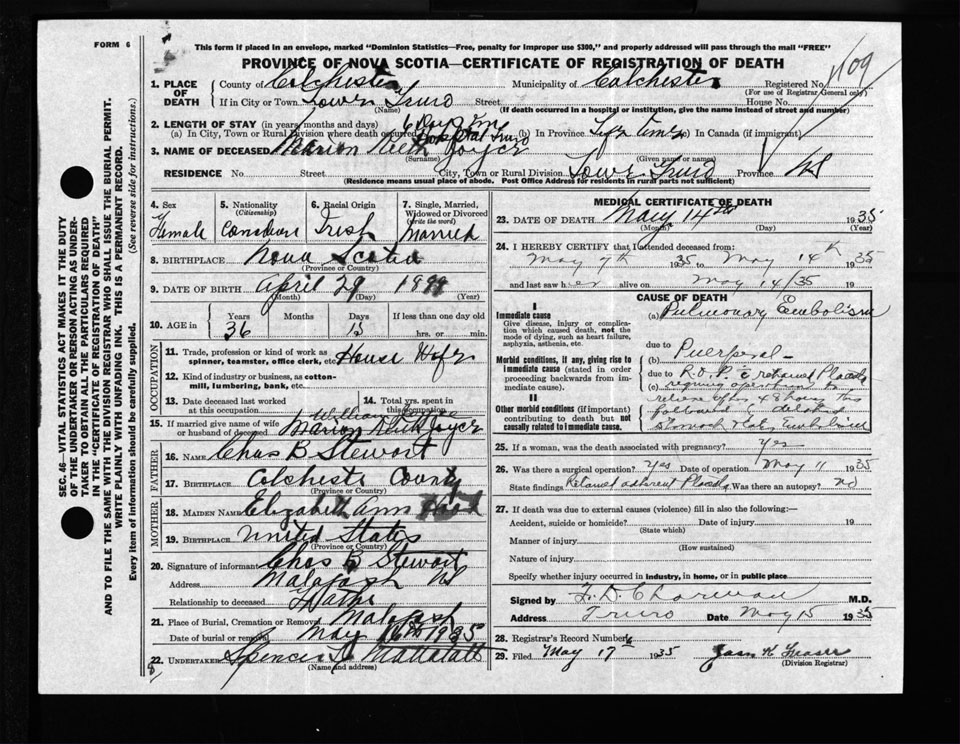 FORM 6
This form if placed in an envelope, marked "Dominion Statistics—Free, penalty for improper use $300," and properly addressed will pass through the mail "FREE"
PROVINCE OF NOVA SCOTIA—CERTIFICATE OF REGISTRATION OF DEATH
109
1. PLACE OF DEATH County of Colchester Municipality of Colchester Registered No.
(For use of Registrar-General only)
If in City or Town Lower Truro Street House No.
(Name) (If death occurred in a hospital or institution, give its name instead of street and number)
2. LENGTH OF STAY (in years, months and days) 6 Days
(a) In City, Town or Rural Division where death occurred Hospital Truro (b) In Province Life Time (c) In Canada (if immigrant)
3. NAME OF DECEASED Marion Joyce
(Surname) (Given name or names)
RESIDENCE No. Street City, Town or Rural Division Lower Truro Province NS
(Residence means usual place of abode. Post Office Address for residents in rural parts not sufficient)
SEC. 46—VITAL STATISTICS ACT MAKES IT THE DUTY
OF THE UNDERTAKER OR PERSON ACTING AS UNDER-
TAKER TO OBTAIN ALL THE PARTICULARS REQUIRED
IN THE "CERTIFICATE OF REGISTRATION OF DEATH"
AND TO FILE THE SAME WITH THE DIVISION REGISTRAR WHO SHALL ISSUE THE BURIAL PERMIT.
WRITE PLAINLY WITH UNFADING INK. THIS IS A PERMANENT RECORD.
Every item of information should be carefully supplied. (See reverse side for instructions.)
4. Sex
Female
5. Nationality
(Citizenship)
Canadian
6. Racial Origin
Irish
7. Single, Married, Widowed or Divorced
(Write the word)
Married
8. BIRTHPLACE Nova Scotia
(Province or Country)
9. DATE OF BIRTH April 29 1899
(Month) (Day) (Year)
10. AGE in Years Months Days If less than one day
36 15 hrs. or min.
OCCUPATION
11. Trade, profession or kind of work as House Wife
spinner, teamster, office clerk, etc.
12. Kind of industry or business, as cotton-
mill, lumbering, bank, etc.
13. Date deceased last worked at this occupation
14. Total yrs. spent in this occupation
William
15. If married give name of wife
or husband of deceased Marion Joyce
FATHER
16. NAME Chas B Stewart
17. BIRTHPLACE Colchester County
(Province or Country)
MOTHER
18. MAIDEN NAME Elizabeth Ann
19. BIRTHPLACE United States
(Province or Country)
20. Signature of informant Chas B Stewart
Address Malagash NS
Relationship to deceased Father
21. Place of Burial, Cremation or Removal Malagash
Date of burial or removal May 16th 1935
22. UNDERTAKER Spencer Mattatall
(Name and address)
MEDICAL CERTIFICATE OF DEATH
23. DATE OF DEATH May 14th 1935
(Month) (Day) (Year)
24. I HEREBY CERTIFY that I attended deceased from
May 9th 1935 to May 14th 1935
and last saw her alive on May 14/35 19
CAUSE OF DEATH
I
Immediate cause
Give disease, injury or complication which caused death, not the mode of dying, such as heart failure, asphyxia, asthenia, etc.
(a) Pulmonary Embolism
due to
Morbid conditions, if any, giving rise to immediate cause (stated in order proceeding backwards from immediate cause).
(b) Puerperal
due to R.O.P. c retained Placenta
(c) requiring operations to
relieve after 48 hours this
II
Other morbid conditions (if important) contributing to death but not causally related to immediate cause.
followed
Stomach Embolism
25. If a woman, was the death associated with pregnancy? Yes
26. Was there a surgical operation? Yes Date of operation May 11 1935
State findings Retained adherent Placenta Was there an autopsy? no
27. If death was due to external causes (violence) fill in also the following:—
Accident, suicide or homicide? Date of injury 19
(State which)
Manner of injury
(How sustained)
Nature of injury
Specify whether injury occurred in industry, in home, or in public place
Signed by F. D. Charman M.D.
Address Truro Date May 15 1935
28. Registrar's Record Number
29. Filed May 17th 1935 Fraser
(Division Registrar)